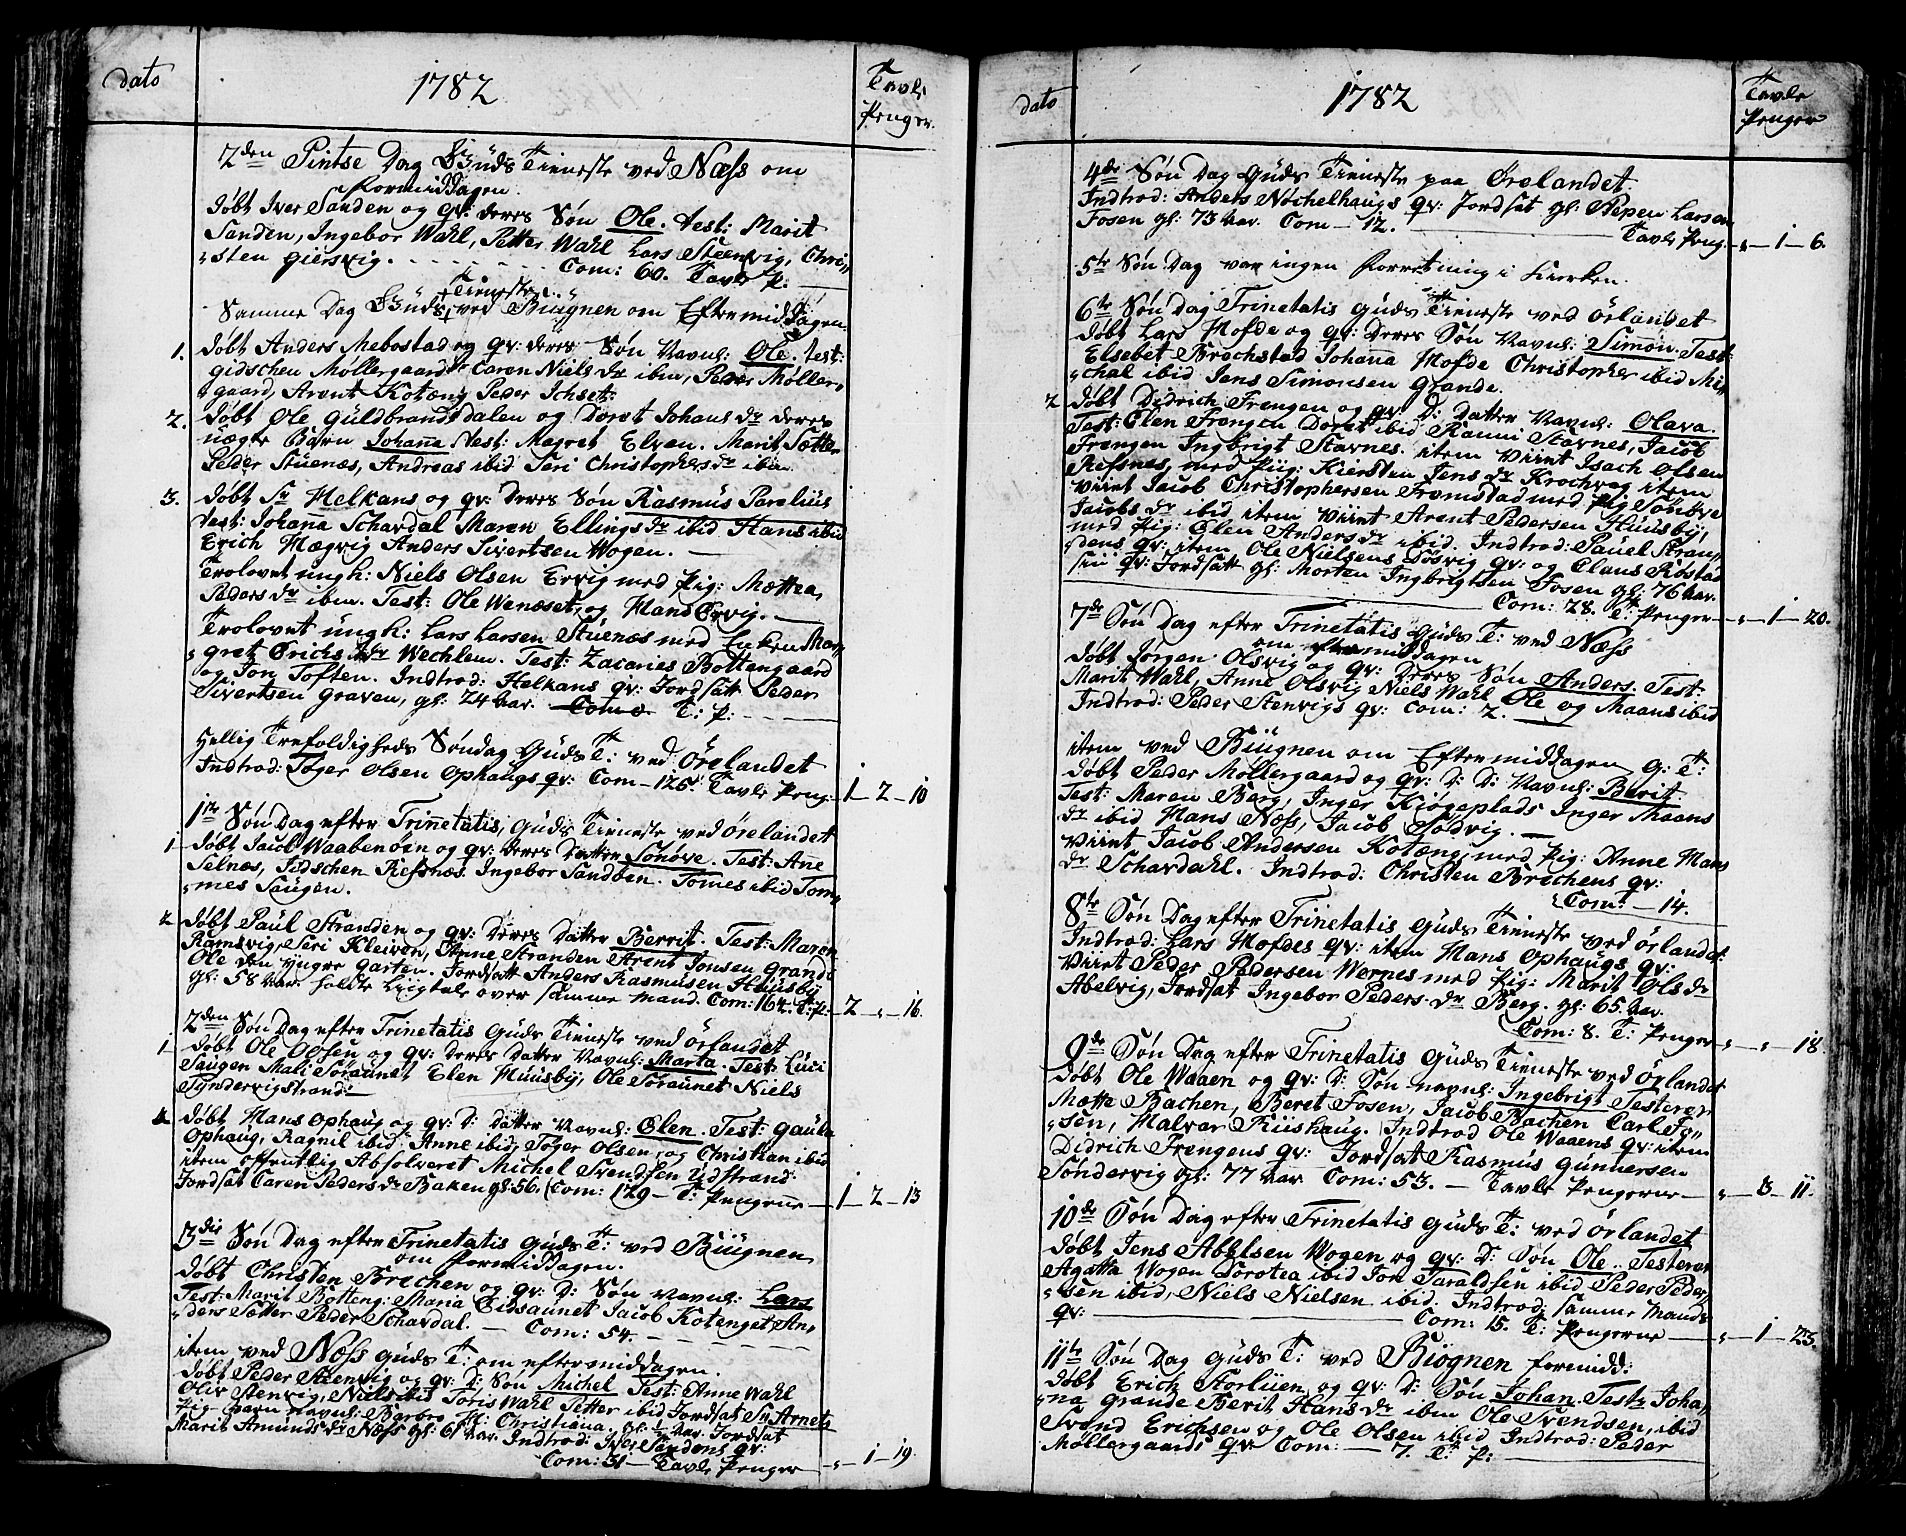 dato
1782
Tavle
Penger.
2den Pintse Dag Guds Tieneste ved Næss om
Formiddagen.
døbt Iver Sanden og qv: deres Søn Ole. test: Marit
Sanden, Ingebor Wahl, Petter Wahl Lars Steenvig, Chri„
„sten Giersvig. Com: 60. Tavle P:
Samme Dag Guds Tieneste ved Biugnen om Eftermiddagen
1. døbt Anders Mebostad og qv: deres Søn Navnl: Ole. test:
gidschen Møllergaard Caren Nielsdr ibm, Peder Møller„
„gaard, Arent Kotæng Peder Ichset:
2. døbt Ole Guldbrandsdalen og Doret Johansdr deres
uægte Barn Johanna test: Magret Elven. Marit Sætter
Peder Stuenæs, Andreas ibid Seri Christophersdr ibm.
3. døbt Sr Helkans og qv: deres Søn Rasmus Parelius
test: Johanna Schavdal Maren Ellingsdr ibid Hans ibid
Erich Mægvig Anders Sivertsen Wogen.
Trolovet ungk: Niels Olsen Ervig med Pig: Mættea
Pedersdr ibm. Test: Ole Wenæset, og Hans Ervig.
Trolovet ungk: Lars Larsen Stuenæs med Enken Mar„
„gret Erichsdr Wechlem. Test: Zacaries Bottengaard
og Jon Toften. Indtrod: Helkans qv: Jordsatt Peder
Sivertsen Graven, gl: 24 Aar. Com 0. T: P:
Hellig Trefoldigheds Søndag Guds T: ved Örelandet
Indtrod: Tøger Olsen Ophaugs qv: Com- 126. Tavle Peng: 1-2-10
1te Søn Dag efter Trinetatis, Guds Tieneste ved Örelandet
1 døbt Jacob Waabenöen og qv: deres Datter Sonöve. Test: Ane
Selnæs, Sidschen Refsnæs. Ingebor Sandöen. Tomes ibid Tom„
„mes Saugen.
2 døbt Paul Stranden og qv: deres Datter Berrit. Test: Maren
Ramsvig, Seri Kleiven, Anne Stranden Arent Jonsen Grande
Ole den yngre Garten. Jordsatt Anders Rasmusen Huusby
gl: 58 Aar. holdte Liigtale over samme Mand. Com: 164. T: P: 2-„-16.
2den Søn Dag efter Trinetatis Guds Tieneste ved Örlandet
1 døbt Ole Opsen og qv: deres Datter Navnl: Marta. Test: Luci
Saugen Mali Soraunet Elen Huusby, Ole Soraunet Niels
Syndervigstrand:
2. døbt Hans Ophaug og qv: D: Datter Navnl: Elen. Test: Gaule
Ophaug, Ragnil ibid: Anne ibid, Tøger Olsen, og Christian ibid
item offentlig Absolveret Michel Svendsen Udstrand.
Jordsat Caren Pedersdr Baken gl: 56. Com: 129- T: Pengene 1-2-13
3die Søn Dag efter Trinetatis Guds T: ved Biugnen
om Formiddagen.
døbt Christen Brechen og qv: D: Søn Navnl: Lars
Test: Marit Botteng: Maria Eidsaunet Jacob Kotenget, An„
„ders Sætter Peder Schavdal. Com: 54.
item ved Næss Guds T: om eftermiddagen.
døbt Peder Stenvig og qv: D: Søn Michel Test: Anne Wahl
Oliv Stenvig, Niels ibid Joris Wahl Petter ibid Jordsat Sr Arnets
Pig Barn Navnl: Barbro M: Christiana gl: Aar. Jordsat
Marit Amundsdr Næss gl: 61 Aar. Indtrod: Iver Sandens qv:
Com: 51- Tavle Penger „-1-19.
dato
1782
Tavle
Penger
4de Søn Dag Guds Tieneste paa Örelandet.
Indtrod: Anders Nøchelhaugs qv: Jordsat gl: Aspen Larsen
Fosen gl: 73 Aar. Com- 12. Tavle Peng- „-1-6.
5te Søn Dag var ingen Forretning i Kirken.
6te Søn Dag Trinetatis Guds Tieneste ved Örlandet
døbt Lars Hofde og qv: Deres Søn Navnl: Simon. Test:
Elsebet Brochstad Johanna Hofde Christopher ibid Mi„
„chal ibid Jens Simonsen Grande.
2 døbt Didrich Frengen og qv: D: Datter Navnl: Olava.
Test: Elen Frengen Doret ibid Ranni Stavnes, Jacob
Frengen Ingbrigt Stavnes. item Viiet Isach Olsen
Refsnes, med Piig: Kiersten Jensdr Krochvog item
Viiet Jacob Christophersen Fremstad med Pig Sonöve
Jacobsdr ibid item Viiet Arent Pedersen Huusby,
med Pig: Elen Andersdr ibid. Indtrod: Pauel Stran„
„dens qv: item Ole Nielsens Døsvig qv: og Claus Røstad
sin qv: Jordsatt gl: Morten Ingbrigtsen Fosen gl: 76 Aar.
Com: 28. T: Penger- „-1-20.
7de Søn Dag efter Trinetatis Guds T: ved Næss
om eftermiddagen
døbt Jørgen Olsvig og qv: Deres Søn Anders. Test:
Marit Wahl, Anne Olsvig Niels Wahl Ole og Maans ibid
Indtrod: Peder Stenvigs qv: Com: 2.
item ved Biugnen om Eftermiddagen G: T:
døbt Peder Møllergaard og qv: D: D: Navnl: Berit.
Test: Maren Berg, Inger Kiøgeplads Inger Maans
dr ibid Hans Næss, Jacob Sødvig.
Viiet Jacob Andersen Kotæng, med Pig: Anne Hans
dr Schavdahl. Indtrod: Christen Brechens qv:
Com: - 14.
8te Søn Dag efter Trinetatis Guds Tieneste ved Örlandet
Indtrod: Lars Hofdes qv: item Hans Ophaugs qv:
Viiet Peder Pedersen Wernes med Pig: Marit Olsdr
Abelvig, Jordsat Ingebor Pedersdr Berg. gl: 65 Aar.
Com: 8. T: Penger „-„-18.
9de Søn Dag efter Trinetatis Guds Tieneste ved Örlandet
døbt Ole Waaen og qv: D: Søn navnl: Ingebrigt Testerer
Mætte Bachen, Beret Fosen, Jacob Bachen Carl Jo„
„sen, Halvar Riishaug. Indtrod Ole Waaens qv: item
Didrich Frengens qv: Jordsat Rasmus Gunnersen
Søndervig gl: 77 Aar. Com: 53. - Tavle Pengerne- „-3-11.
10de Søn Dag efter Trinetatis Guds T: ved Örlandet
døbt Jens Abelsen Wogen og qv: D: Søn Ole. Testerer
Agatta Wogen Dorotea ibid Jon Taraldsen ibid Peder Peder„
„sen ibid, Niels Nielsen ibid. Indtrod: samme Mands
qv: Com: 15. T: Pengerne- „-1-23.
11te Søn Dag Guds T: ved Biognen formidd:
døbt Erich Storliien og qv: D: Søn Johan. Test: Joha„
„na Grande Berit Hansdr ibm Ole Svendsen, ibid
Svend Erichsen og Ole Olsen ibid Indtrod: Peder
Møllergaards qv: Com: - 7. T: P: